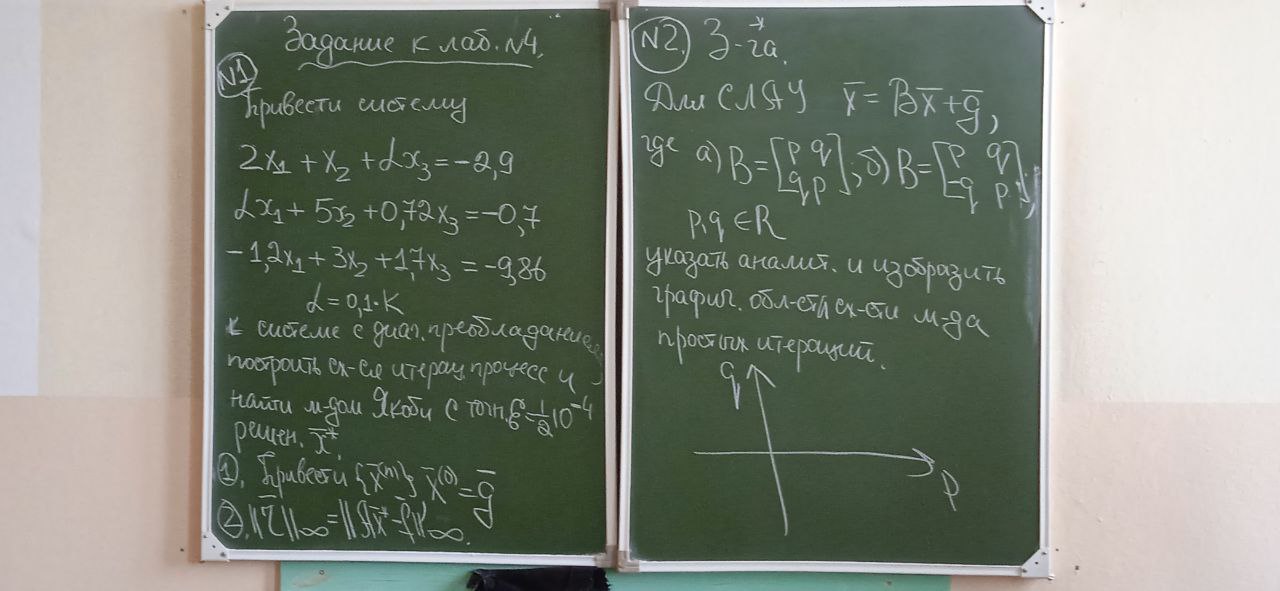 Задание к лаб. №4.
№1
Привести систему
2x₁ + x₂ + αx₃ = -2,9
αx₁ + 5x₂ + 0,72x₃ = -0,7
-1,2x₁ + 3x₂ + 1,7x₃ = -9,86
α = 0,1·K
к системе с диаг. преобладанием,
построить сх-ся итерац. процесс и
найти м-дом Якоби с точн. ε = ½ 10⁻⁴
решен. x̄*.
①. Привести {x̄⁽ᵐ⁾} x̄⁽⁰⁾ = ḡ
②. ||r̄||∞ = ||Ax̄* - f̄||∞.
№2. З-ча*.
Для СЛАУ x̄ = Bx̄ + ḡ,
где а) B = [p q; q p]; б) B = [p q; -q p];
p, q ∈ R
указать аналит. и изобразить
графич. обл-сть сх-сти м-да
простых итераций.
q
p